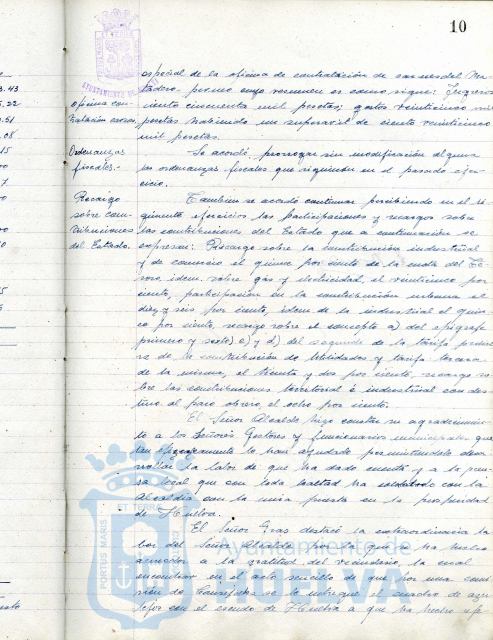 10
AYUNTAMIENTO DE
especial de la oficina de contratación de carnes del Ma-
tadero, por cuyo resumen es como sigue: Ingresos
ciento cincuenta mil pesetas; gastos veinticinco mil
pesetas habiendo un superavit de ciento veinticinco
mil pesetas.
Oficina con-
tratación carnes.
Ordenanzas
fiscales.-
Se acordó prorrogar sin modificación alguna
las ordenanzas fiscales que rigieron en el pasado ejer-
cicio.
Recargo
sobre con-
tribuciones
del Estado.
También se acordó continuar percibiendo en el si-
guiente ejercicio las participaciones y recargos sobre
las contribuciones del Estado que a continuación se
expresan: Recargo sobre la contribución industrial
y de comercio el quince por ciento de la cuota del Te-
soro, idem. sobre gas y electricidad, el veinticinco por
ciento, participación en la contribución urbana el
diez y seis por ciento, idem de la industrial el quin-
ce por ciento, recargo sobre el concepto a) del epígrafe
primero y sexto) c) y d) del segundo de la tarifa prime-
ra de la contribución de Utilidades y tarifa tercera
de la misma, el treinta y dos por ciento, recargo so-
bre las contribuciones territorial e industrial con des-
tino al paro obrero, el ocho por ciento.
El Señor Alcalde hizo constar su agradecimien-
to a los Señores Gestores y funcionarios municipales que
tan eficazmente le han ayudado permitiéndole desa-
rrollar la labor de que ha dado cuenta y a la pren-
sa local que con toda lealtad ha colaborado con la
Alcaldía con la mira puesta en la prosperidad
de Huelva.
El Señor Gras destacó la extraordinaria la-
bor del Señor Alcalde por la que se ha hecho
acreedor a la gratitud del vecindario, la cual
encontrar en el acto sencillo de que por una comi-
sión de Concejales se le entregue el cuadro de azu-
lejos con el escudo de Huelva a que ha hecho
Ayuntamiento de
HUELVA
PORTUS MARIS
3.43
5.22
.51
.08
.15